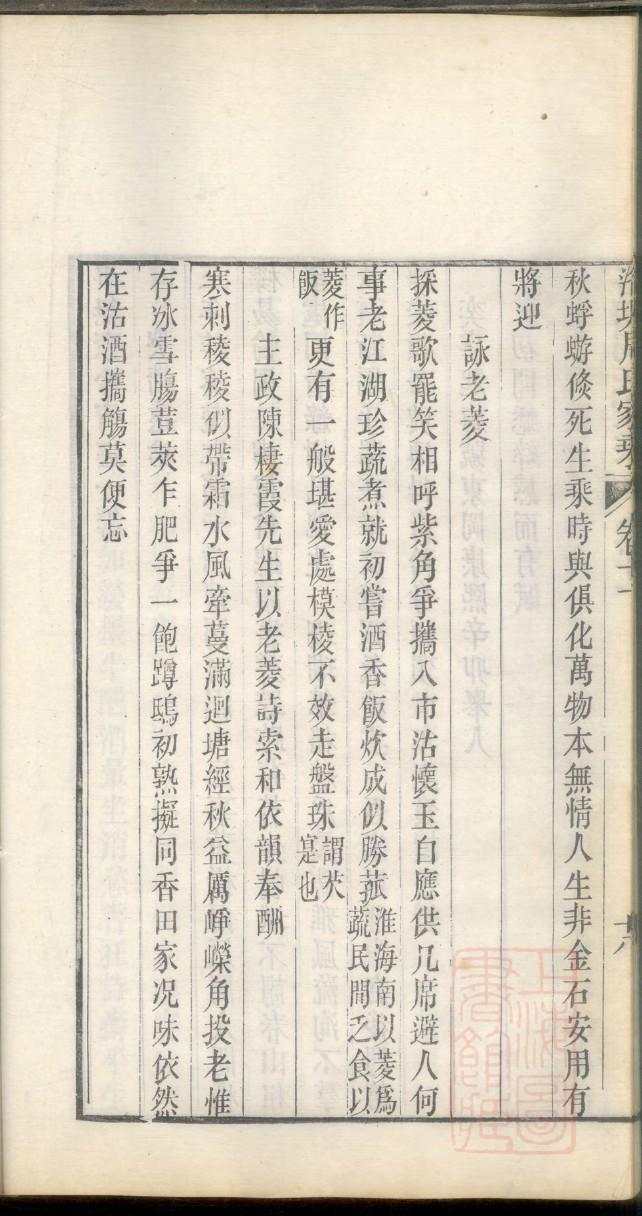 周氏家乘 卷十
秋蜉蝣倏死生乘時與俱化萬物本無情人生非金石安用有
將迎
詠老菱
採菱歌罷笑相呼紫角爭攜入市沽懷玉自應供几席避人何
事老江湖珍蔬煮就初嘗酒香飯炊成似勝菰淮海南以菱爲蔬民間乏食以
菱作飯更有一般堪愛處模稜不效走盤珠謂芡寔也
主政陳棲霞先生以老菱詩索和依韻奉酬
寒刺稜稜似帶霜水風牽蔓滿迴塘經秋益厲崢嶸角投老惟
存冰雪腸荳莢乍肥爭一飽蹲鴟初熟擬同香田家况味依然
在沽酒攜觴莫便忘
上海圖書館藏